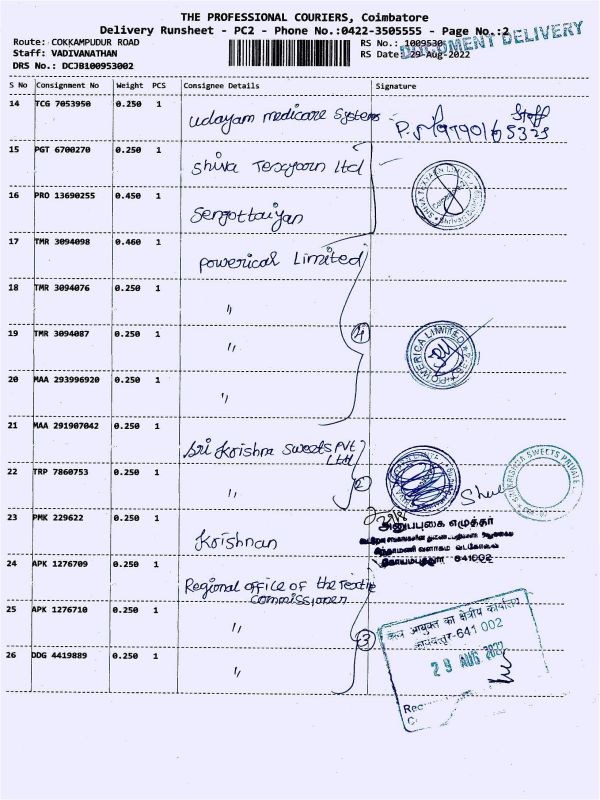 THE PROFESSIONAL COURIERS, Coimbatore
Delivery Runsheet - PC2 - Phone No.:0422-3505555 - Page No.:2
DOCUMENT DELIVERY
Route: COKKAMPUDUR ROAD RS No.: 1009530
Staff: VADIVANATHAN RS Date: 29-Aug-2022
DRS No.: DCJB100953002
S No Consignment No Weight PCS Consignee Details Signature
14 TCG 7053950 0.250 1 Udayam medicare Systems Staff
15 PGT 6700270 0.250 1 Shiva Texyarn Ltd
16 PRO 13690255 0.450 1 Sengottaiyan
17 TMR 3094098 0.460 1 Powerical Limited
18 TMR 3094076 0.250 1 "
19 TMR 3094087 0.250 1 "
4
POWERICA LIMITED
20 MAA 293996920 0.250 1 "
21 MAA 291907042 0.250 1 Sri Krishna Sweets Pvt
Ltd
22 TRP 7860753 0.250 1 " 2
SRI KRISHNA SWEETS PRIVATE
23 PMK 229622 0.250 1 Krishnan
அனுபபுகை எழுத்தர்
641002
24 APK 1276709 0.250 1 Regional office of the Textile
Commissioner
25 APK 1276710 0.250 1 "
3
का क्षेत्रीय कार्यालय
641 002
29 AUG 2022
26 DDG 4419889 0.250 1 "